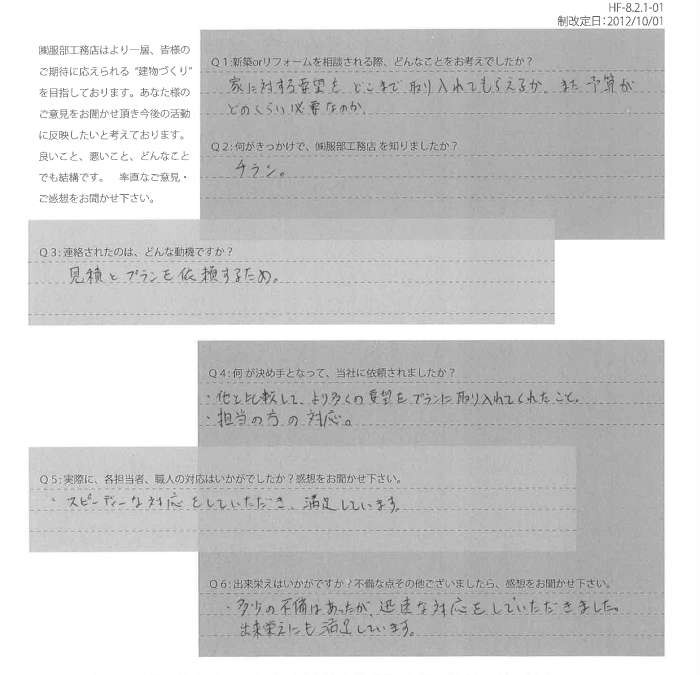 HF-8.2.1-01
制改定日:2012/10/01
㈱服部工務店はより一層、皆様の
ご期待に応えられる “建物づくり”
を目指しております。あなた様の
ご意見をお聞かせ頂き今後の活動
に反映したいと考えております。
良いこと、悪いこと、どんなこと
でも結構です。 率直なご意見・
ご感想をお聞かせ下さい。
Q1:新築orリフォームを相談される際、どんなことをお考えでしたか?
家に対する要望を、どこまで取り入れてもらえるか、また予算が
どのくらい必要なのか。
Q2:何がきっかけで、㈱服部工務店 を知りましたか?
チラシ。
Q3:連絡されたのは、どんな動機ですか?
見積とプランを依頼するため。
Q4:何 が決め手となって、当社に依頼されましたか?
・他と比較して、より多くの要望をプランに取り入れてくれたこと。
・担当の方の対応。
Q5:実際に、各担当者、職人の対応はいかがでしたか?感想をお聞かせ下さい。
・スピーディーな対応をしていただき、満足しています。
Q6:出来栄えはいかがですか?不備な点その他ございましたら、感想をお聞かせ下さい。
・多少の不備はあったが、迅速な対応をしていただきました。
出来栄えにも満足しています。